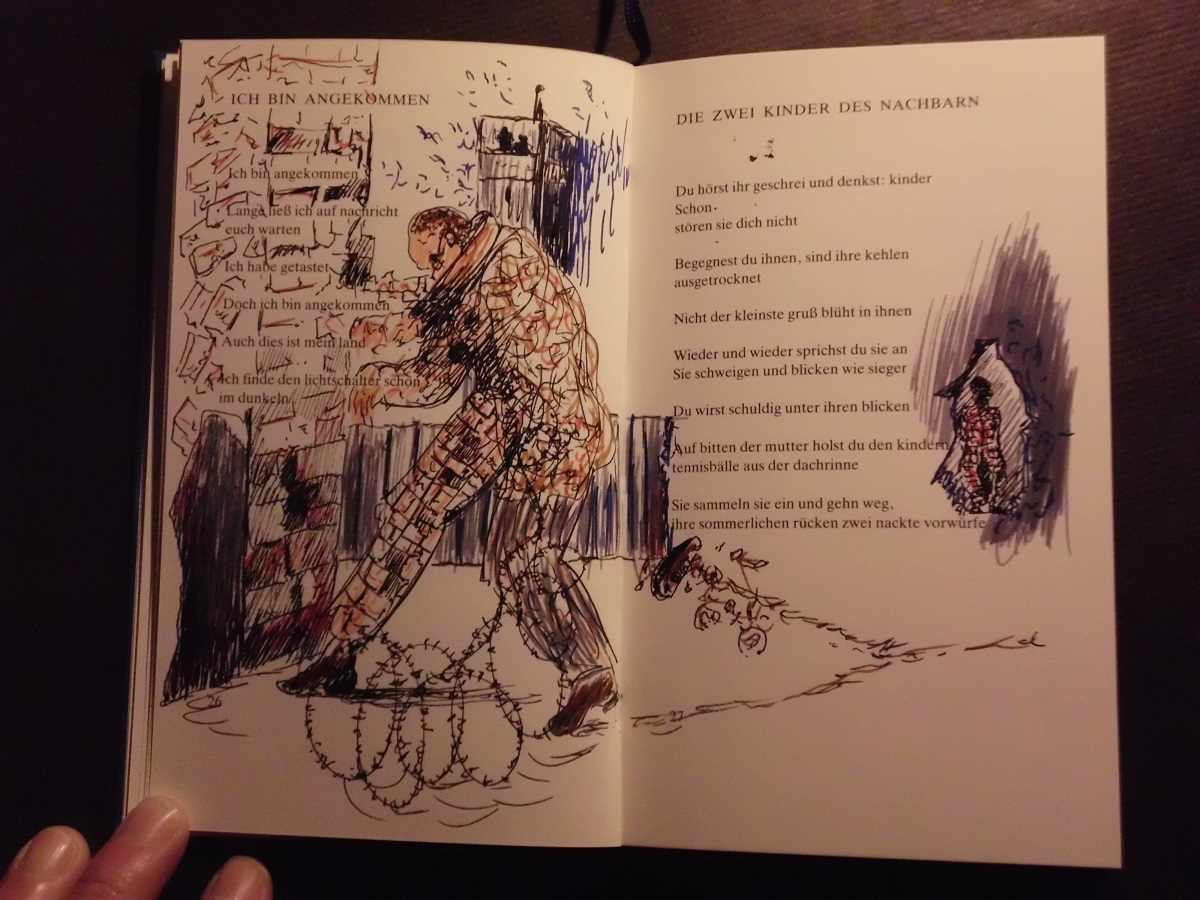 ICH BIN ANGEKOMMEN
Ich bin angekommen
Lange ließ ich auf nachricht
euch warten
Ich habe getastet
Doch ich bin angekommen
Auch dies ist mein land
Ich finde den lichtschalter schon
im dunkeln
26
DIE ZWEI KINDER DES NACHBARN
Du hörst ihr geschrei und denkst: kinder
Schon
stören sie dich nicht
Begegnest du ihnen, sind ihre kehlen
ausgetrocknet
Nicht der kleinste gruß blüht in ihnen
Wieder und wieder sprichst du sie an
Sie schweigen und blicken wie sieger
Du wirst schuldig unter ihren blicken
Auf bitten der mutter holst du den kindern
tennisbälle aus der dachrinne
Sie sammeln sie ein und gehn weg,
ihre sommerlichen rücken zwei nackte vorwürfe
27